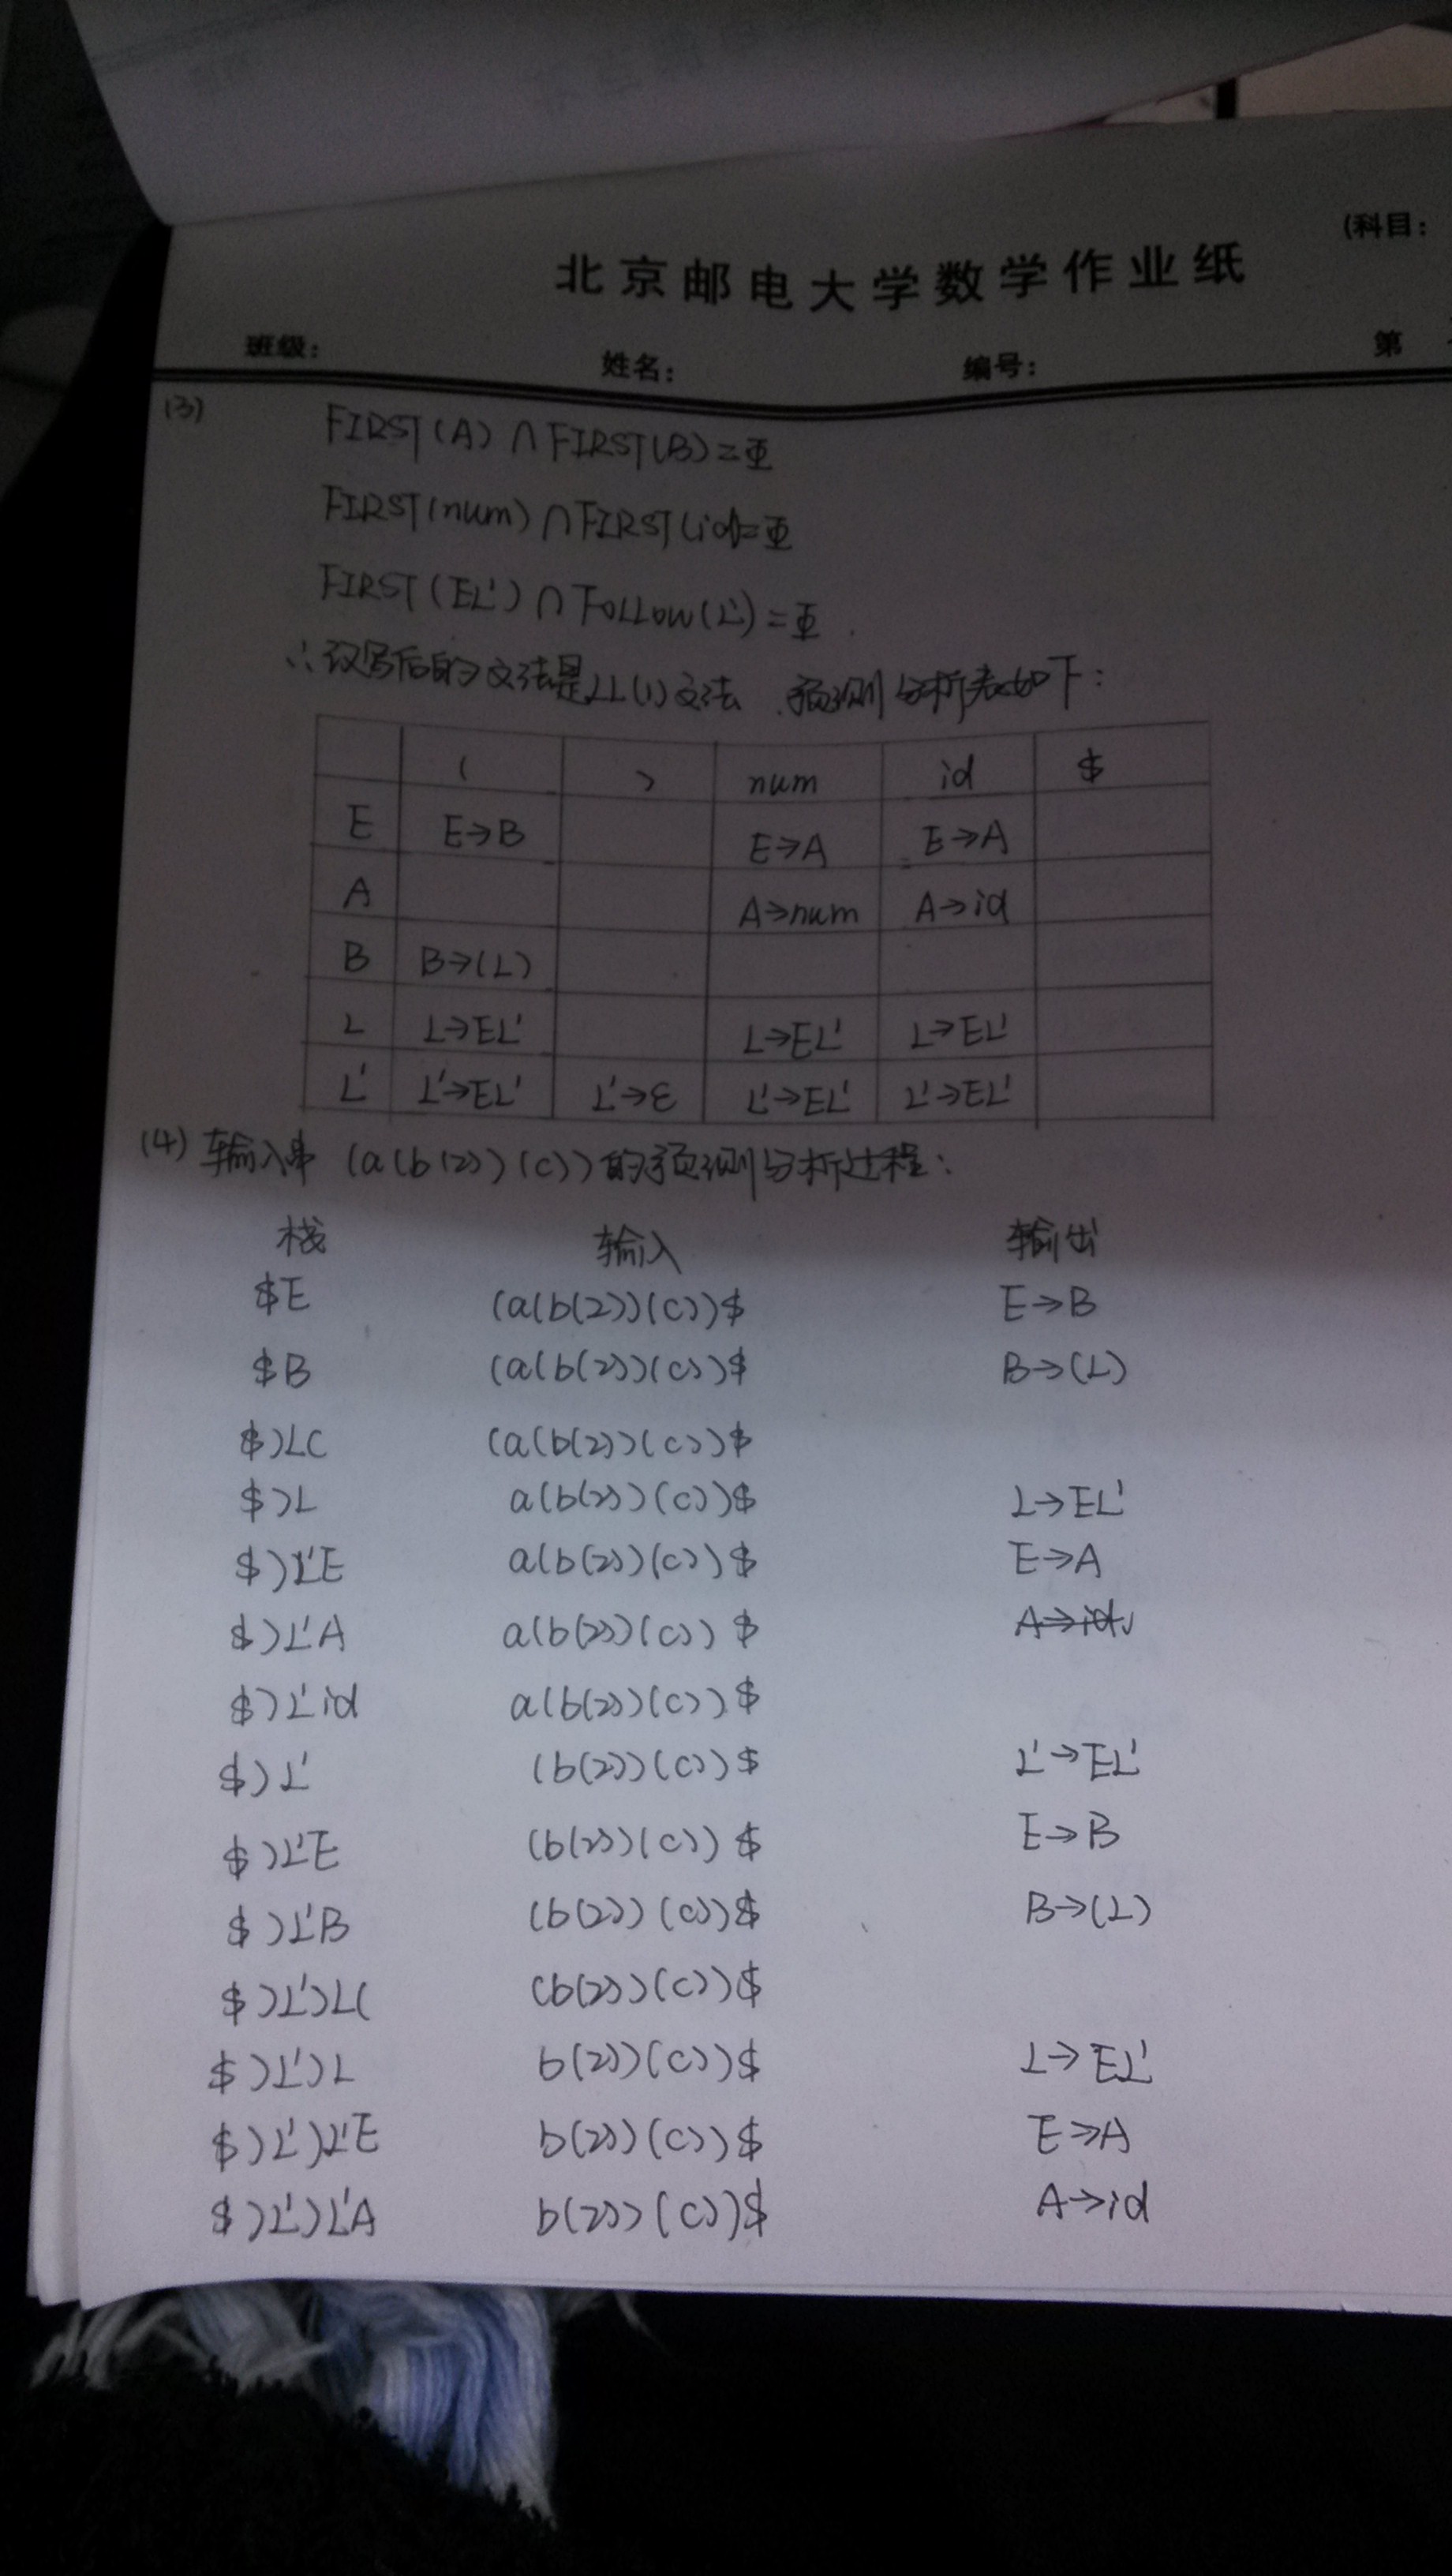 (科目:
北京邮电大学数学作业纸
班级: 姓名: 编号: 第
(3) FIRST(A) ∩ FIRST(B) = Φ
FIRST(num) ∩ FIRST(id) = Φ
FIRST(EL') ∩ FOLLOW(L') = Φ.
∴改写后的文法是LL(1)文法 .预测分析表如下:
( ) num id $
E E→B E→A E→A
A A→num A→id
B B→(L)
L L→EL' L→EL' L→EL'
L' L'→EL' L'→ε L'→EL' L'→EL'
(4) 输入串 (a(b(2))(c))的预测分析过程:
栈 输入 输出
$E (a(b(2))(c))$ E→B
$B (a(b(2))(c))$ B→(L)
$)L( (a(b(2))(c))$
$)L a(b(2))(c))$ L→EL'
$)L'E a(b(2))(c))$ E→A
$)L'A a(b(2))(c))$ A→id
$)L'id a(b(2))(c))$
$)L' (b(2))(c))$ L'→EL'
$)L'E (b(2))(c))$ E→B
$)L'B (b(2))(c))$ B→(L)
$)L')L( (b(2))(c))$
$)L')L b(2))(c))$ L→EL'
$)L')L'E b(2))(c))$ E→A
$)L')L'A b(2))(c))$ A→id